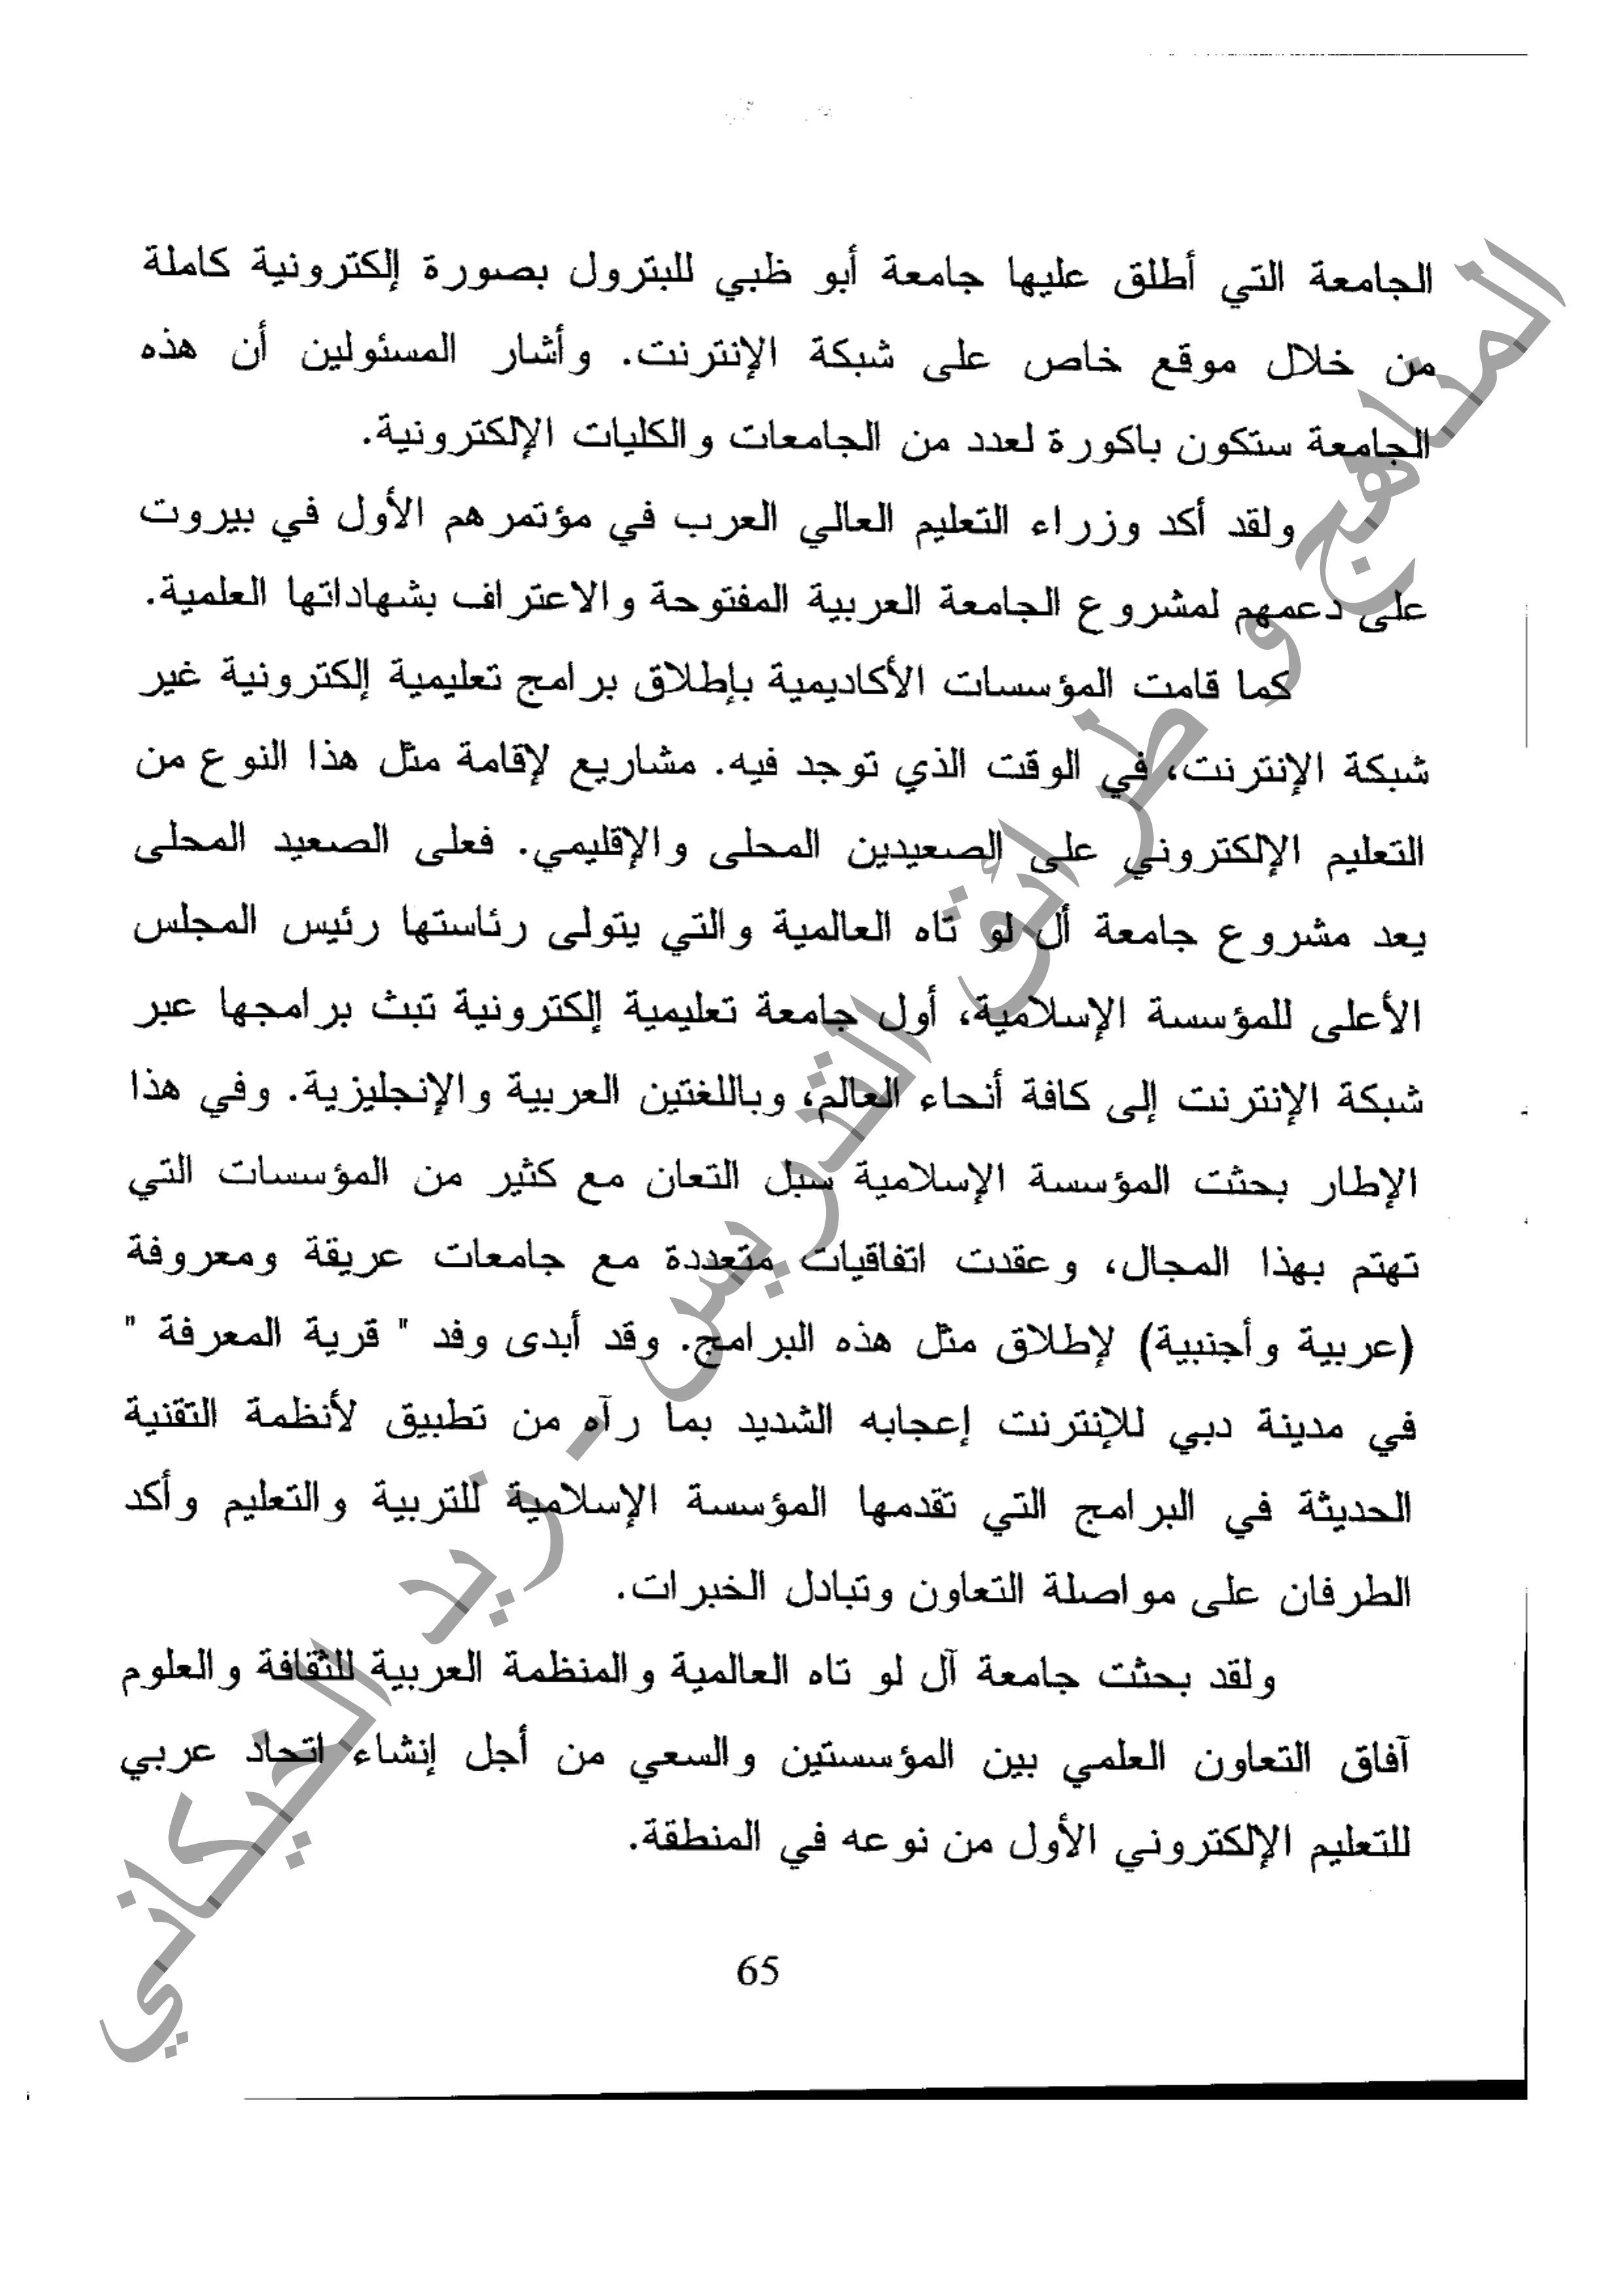 الجامعة التي أطلق عليها جامعة أبو ظبي للبترول بصورة إلكترونية كاملة
من خلال موقع خاص على شبكة الإنترنت. وأشار المسئولين أن هذه
الجامعة ستكون باكورة لعدد من الجامعات والكليات الإلكترونية.
ولقد أكد وزراء التعليم العالي العرب في مؤتمرهم الأول في بيروت
على دعمهم لمشروع الجامعة العربية المفتوحة والاعتراف بشهاداتها العلمية.
كما قامت المؤسسات الأكاديمية بإطلاق برامج تعليمية إلكترونية غير
شبكة الإنترنت، في الوقت الذي توجد فيه. مشاريع لإقامة مثل هذا النوع من
التعليم الإلكتروني على الصعيدين المحلى والإقليمي. فعلى الصعيد المحلى
يعد مشروع جامعة أل لو تاه العالمية والتي يتولى رئاستها رئيس المجلس
الأعلى للمؤسسة الإسلامية، أول جامعة تعليمية إلكترونية تبث برامجها عبر
شبكة الإنترنت إلى كافة أنحاء العالم، وباللغتين العربية والإنجليزية. وفي هذا
الإطار بحثت المؤسسة الإسلامية سبل التعان مع كثير من المؤسسات التي
تهتم بهذا المجال، وعقدت اتفاقيات متعددة مع جامعات عريقة ومعروفة
(عربية وأجنبية) لإطلاق مثل هذه البرامج. وقد أبدى وفد " قرية المعرفة "
في مدينة دبي للإنترنت إعجابه الشديد بما رآه من تطبيق لأنظمة التقنية
الحديثة في البرامج التي تقدمها المؤسسة الإسلامية للتربية والتعليم وأكد
الطرفان على مواصلة التعاون وتبادل الخبرات.
ولقد بحثت جامعة آل لو تاه العالمية والمنظمة العربية للثقافة والعلوم
آفاق التعاون العلمي بين المؤسستين والسعي من أجل إنشاء اتحاد عربي
للتعليم الإلكتروني الأول من نوعه في المنطقة.
65
المناهج و طرائق التدريس - زيد الخيكاني